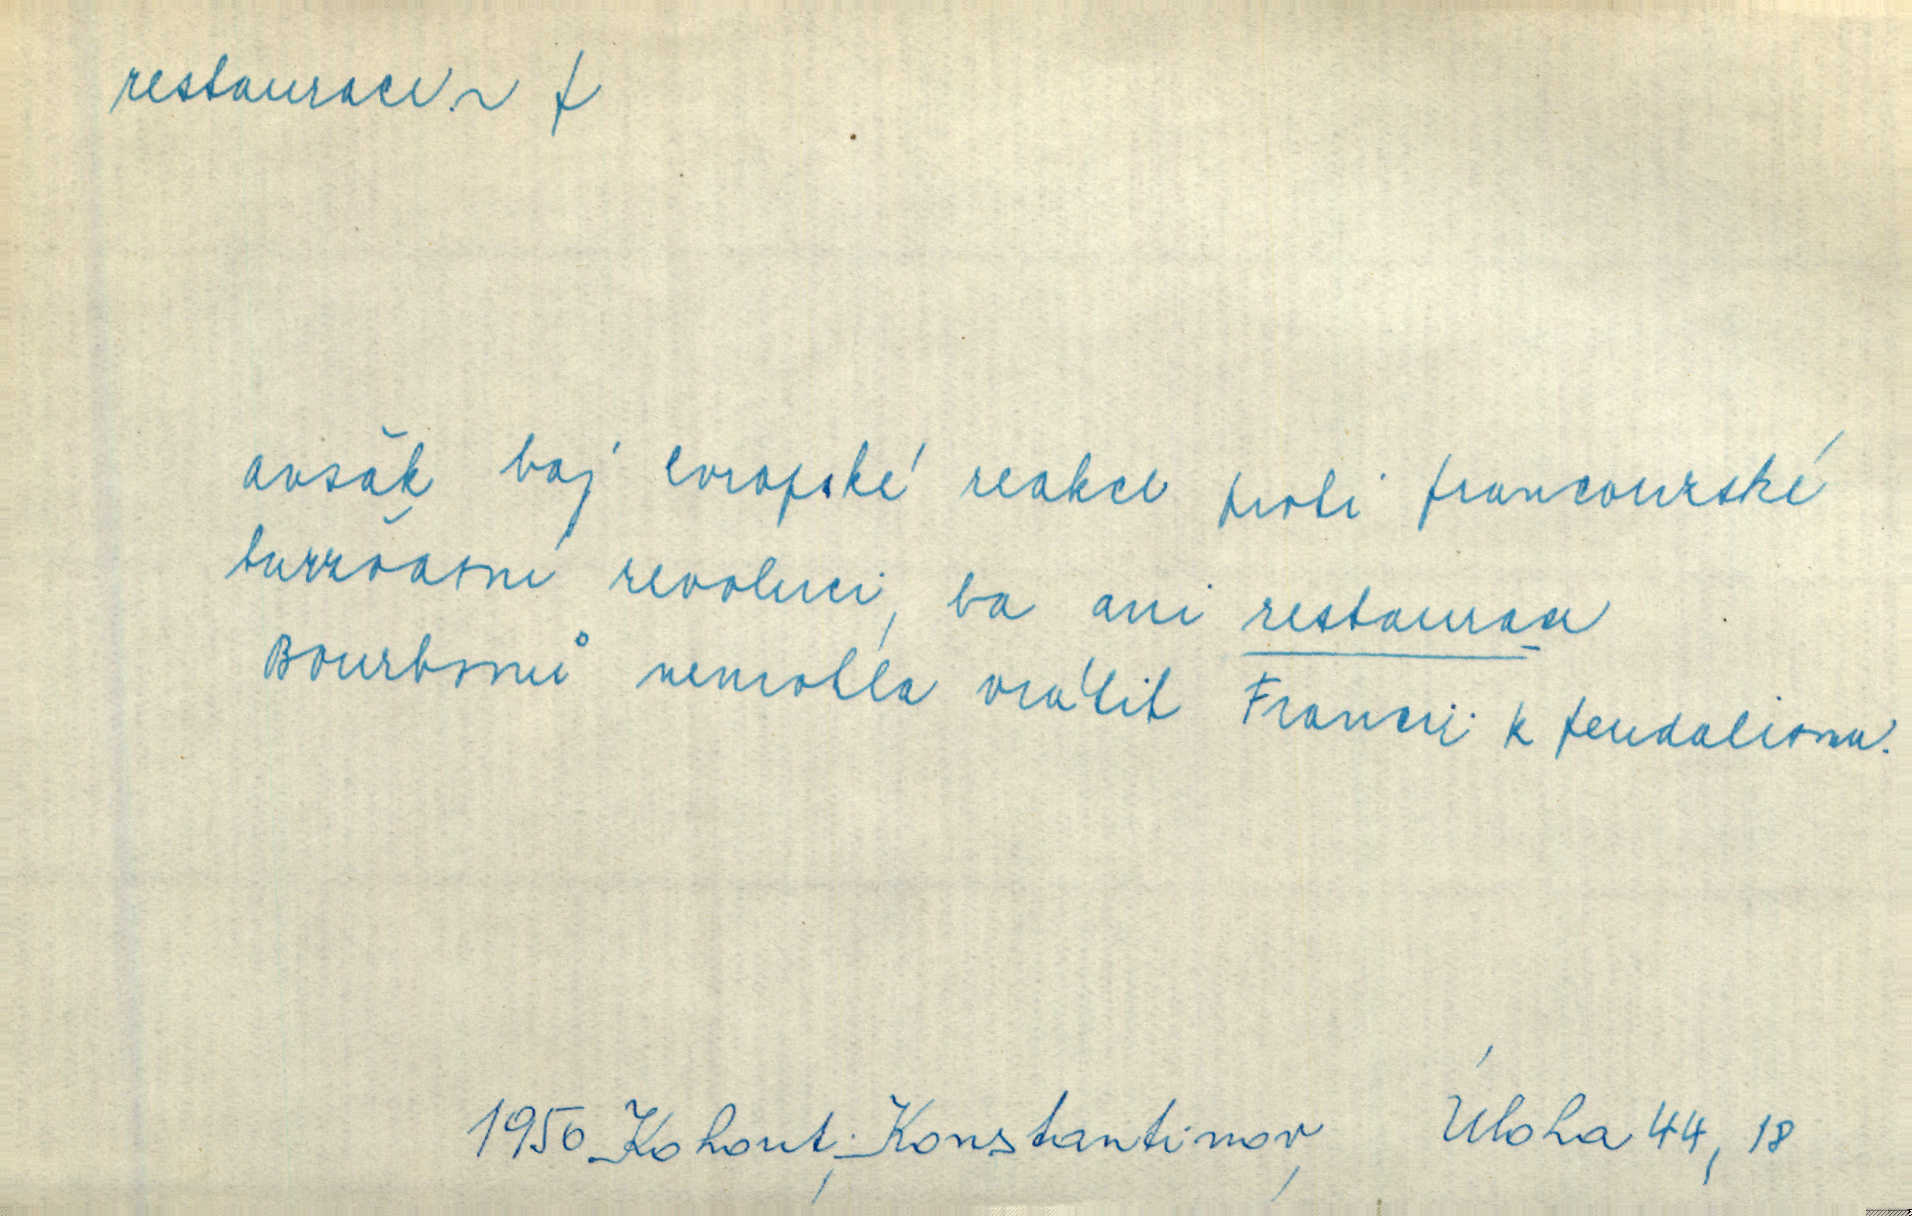 restaurace ~ f
avšak boj evropské reakce proti francouzské
buržoasní revoluci, ba ani restaurace
Bourbonů nemohla vrátit Francii k feudalismu.
1950 Kohout, Konstantinov, Úloha 44, 18